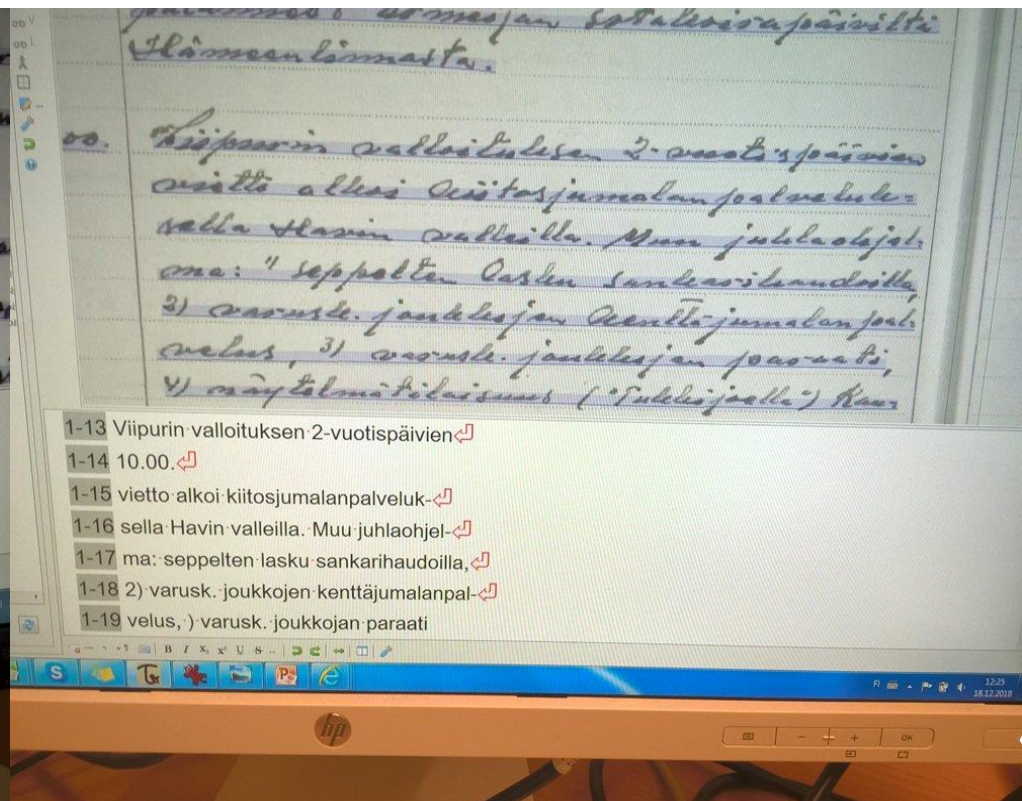 palannut armeijan sotakoirapäiviltä
Hämeenlinnasta.
00. Viipurin valloituksen 2-vuotispäivien
vietto alkoi kiitosjumalanpalveluk=
sella Havin valleilla. Muu juhlaohjel:
ma: " seppelten lasku sankarihaudoilla,
2) varusk. joukkojen kenttäjumalanpal:
velus, 3) varusk. joukkojen paraati,
4) näytelmätilaisuus ("Tukkijoella") Kau=
1-13 Viipurin valloituksen 2-vuotispäivien
1-14 10.00.
1-15 vietto alkoi kiitosjumalanpalveluk-
1-16 sella Havin valleilla. Muu juhlaohjel-
1-17 ma: seppelten lasku sankarihaudoilla,
1-18 2) varusk. joukkojen kenttäjumalanpal-
1-19 velus, ) varusk. joukkojan paraati
FI 12:25
18.12.2018
hp
OK